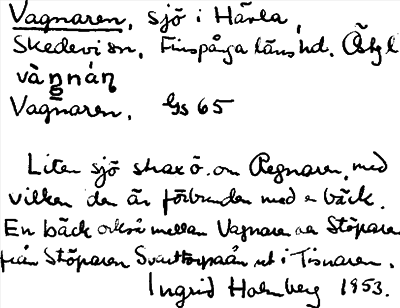 Vagnaren, sjö i Hävla,
Skedevi sn, Finspånga läns hd. Östgl
vàŋnán
Vagnaren. Gs 65
Liten sjö strax ö. om Regnaren, med
vilken den är förbunden med en bäck.
En bäck också mellan Vagnaren och Stöparen
från Stöparen Svarttorpaån ut i Tisnaren.
Ingrid Holmberg 1953.